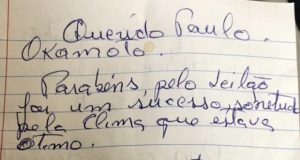 Querido Paulo.
Okamoto.
Parabéns, pelo leilão
foi um sucesso,
pela clima que estava
ótimo.